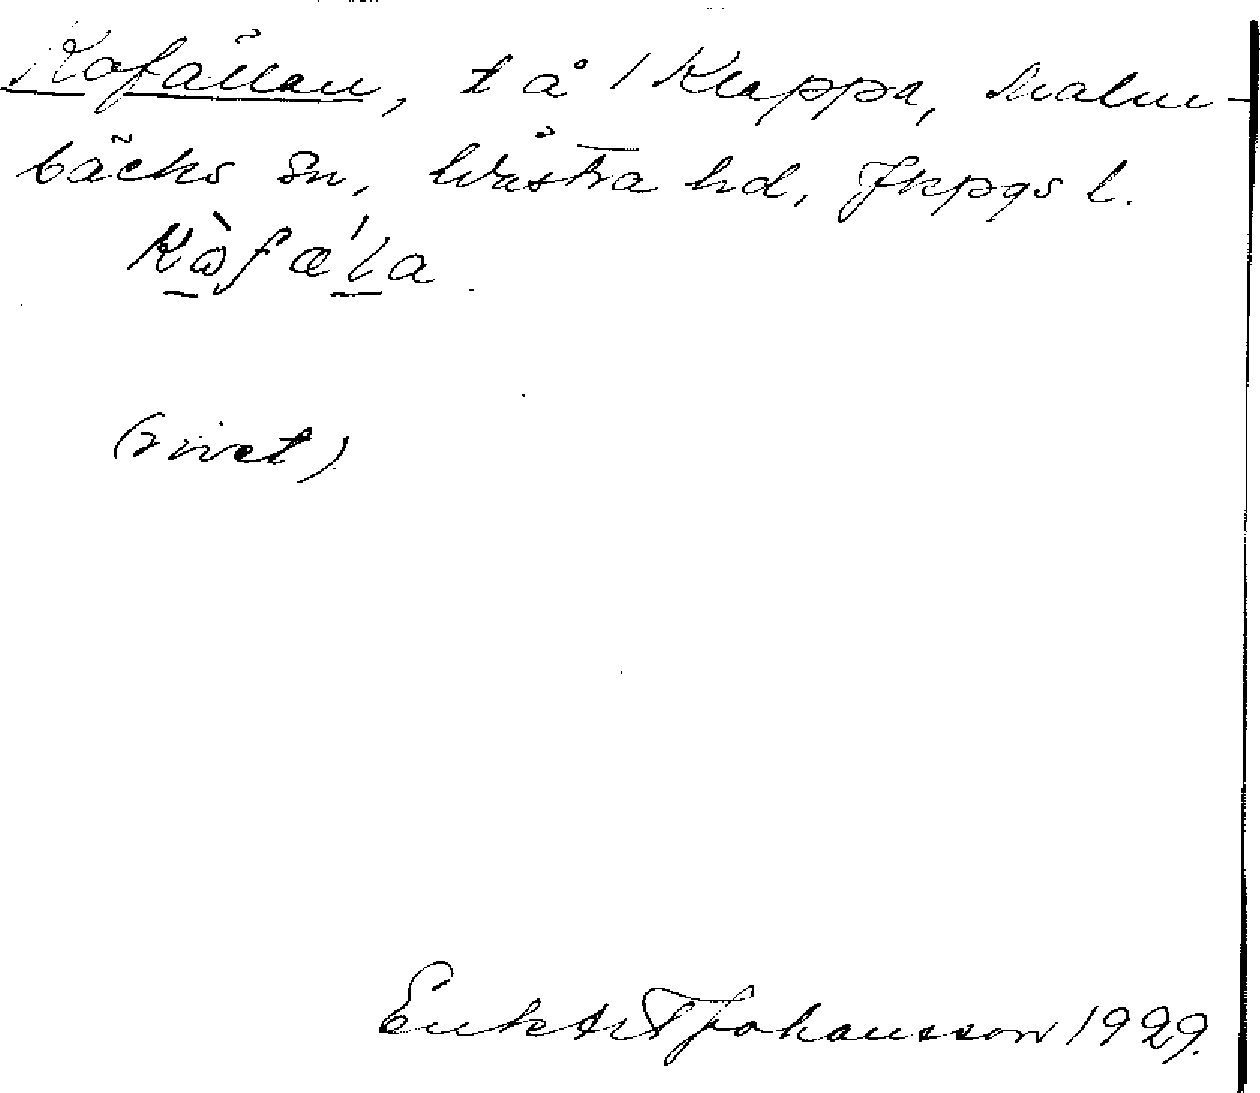 Kofällan, t å / Klappa, Malm-
bäcks sn, Västra hd, Jkpgs l.
Kòfæ'la.
(rivet)
Enk Johansson 1929.